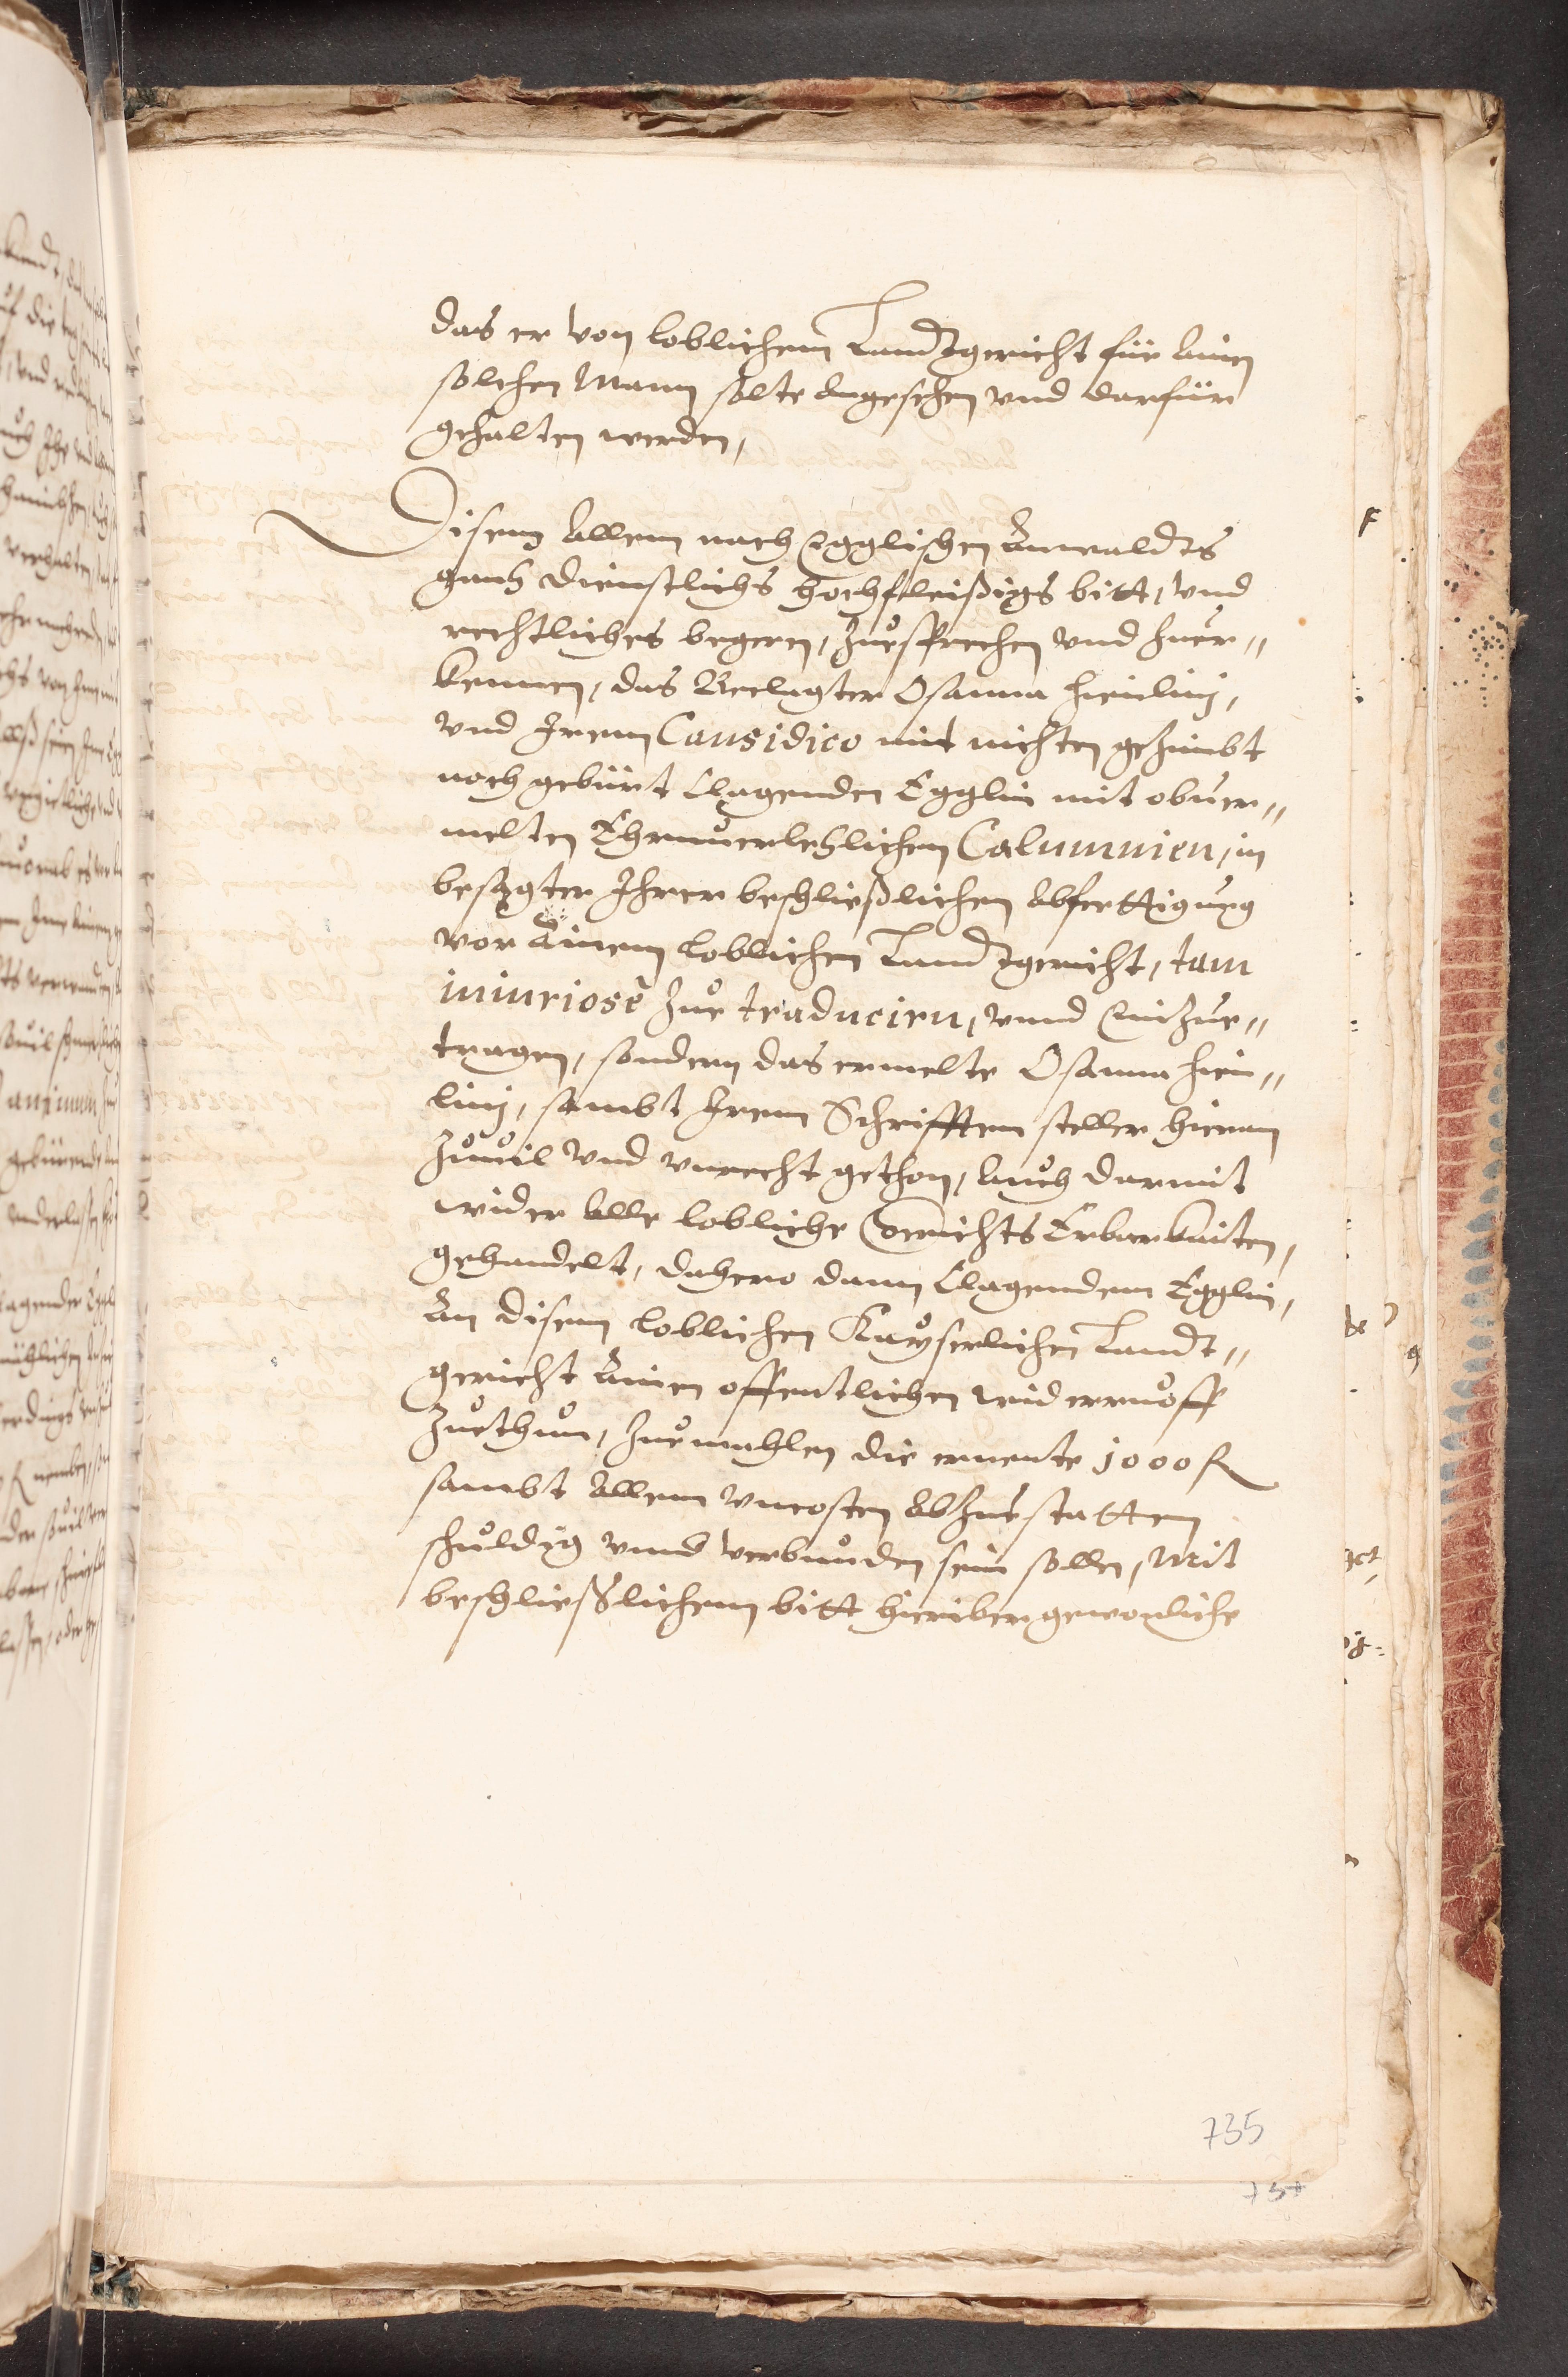 das er von loblichem Landtgericht für ainen
solchen Mann solte angesehen vnd darfür
gehalten werden,
Disem allem nach Egglischen Anwaldts
gantz dienstlichs hochfleißigs bitt, vnd
rechtliches begeren, Zuesprechen vnd Zuer„
kennen, das Beclagter Osanna Heinlin,
vnd Irem Causidico mit nichten gezimbt
noch gebürt Clagenden Egglin mit obuer„
melten Ehrnuerletzlichen Calumnien, in
besagter Ihrer beschließlichen abferttigung
vor Ainem loblichen Landtgericht, tam
iniuriosè Zue traducirn, vnnd Einzue„
tragen, sondern das ermelte Osanna Hein„
lin, sambt Irem Schrifften steller hieran
Zuuil vnd vnrecht gethon, auch darmit
wider alle lobliche Gerichts Erbarkaiten,
gehandelt, dahero dann Clagendem Egglin,
An disem loblichen Kayserlichen Landt„
gericht Ainen offentlichen widerruoff
Zuethun, Zuemahlen die ernente 1000 fl
sambt allem vncosten abzuestatten
schuldig vnnd verbunden sein sollen, Mit
beschließlichem bitt hieriber gewonliche
735
737